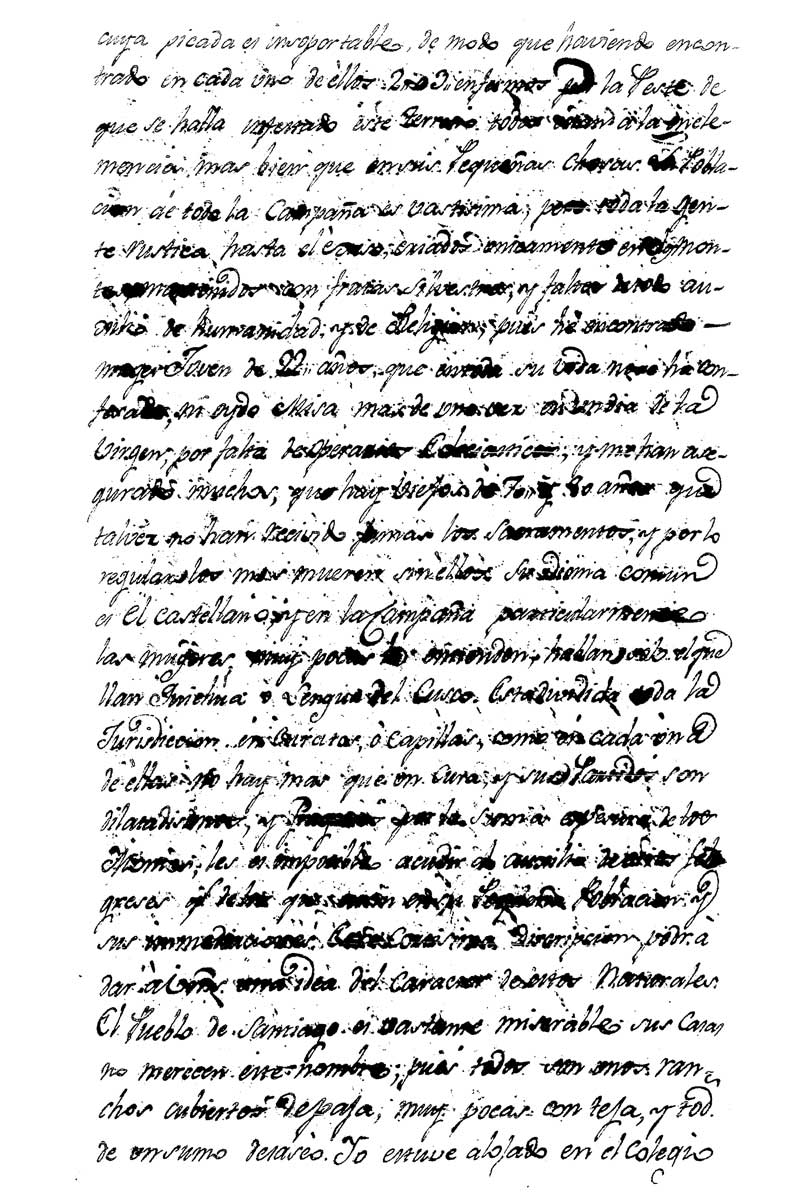 cuya picada es insoportable, de modo que haviendo encon-
trado en cada uno de ellos 2 o 3 enfermos por la Peste de
que se halla infestado este terreno todos à la incle-
mencia, mas bien que en sus Pequeñas Chosas. La Pobla-
cion de toda la Campaña es vastisima; pero toda la gen-
te rustica hasta el criados unicamente en los mon-
tes mantenidos con frutas silvestres, y faltos de todo au-
xilio de humanidad, y de Religion; pues hè encontrado
muger Joven de 22 años, que en toda su vida no se hà con-
fesado, ni oydo Misa mas de una vez en un dia de la
Virgen, por falta de operarios; y me han ase-
gurado muchos, que hay viejos de 70 y 80 años que
talvez no han recivido jamas los sacramentos, y por lo
regular los mas mueren sin ellos. Su idioma comun
es el Castellano, y en la Campaña particularmente
las mugeres, muy pocas lo entienden, hablan solo el que
llan Quichua ò Lengua del Cusco. Esta dividida toda la
Jurisdiccion en Curatos, ò Capillas, como en cada una
de ellas no hay mas que un Cura, y sus Partidos son
dilatadisimos, y por la suma de los
les es imposible acudir al auxilio de otros feli-
greses q.e de los que estàn en su Pequeña Poblacion y
sus immediaciones. Esta Cortisima Discripcion podrà
dar à una idea del Caracter de estos Naturales.
El Pueblo de Santiago es vastante miserable, sus Casas
no merecen este nombre; pues todos son unos ran-
chos cubiertos de paja, muy pocas con teja, y tod.
de un sumo desaseo. Yo estuve alojado en el Colegio